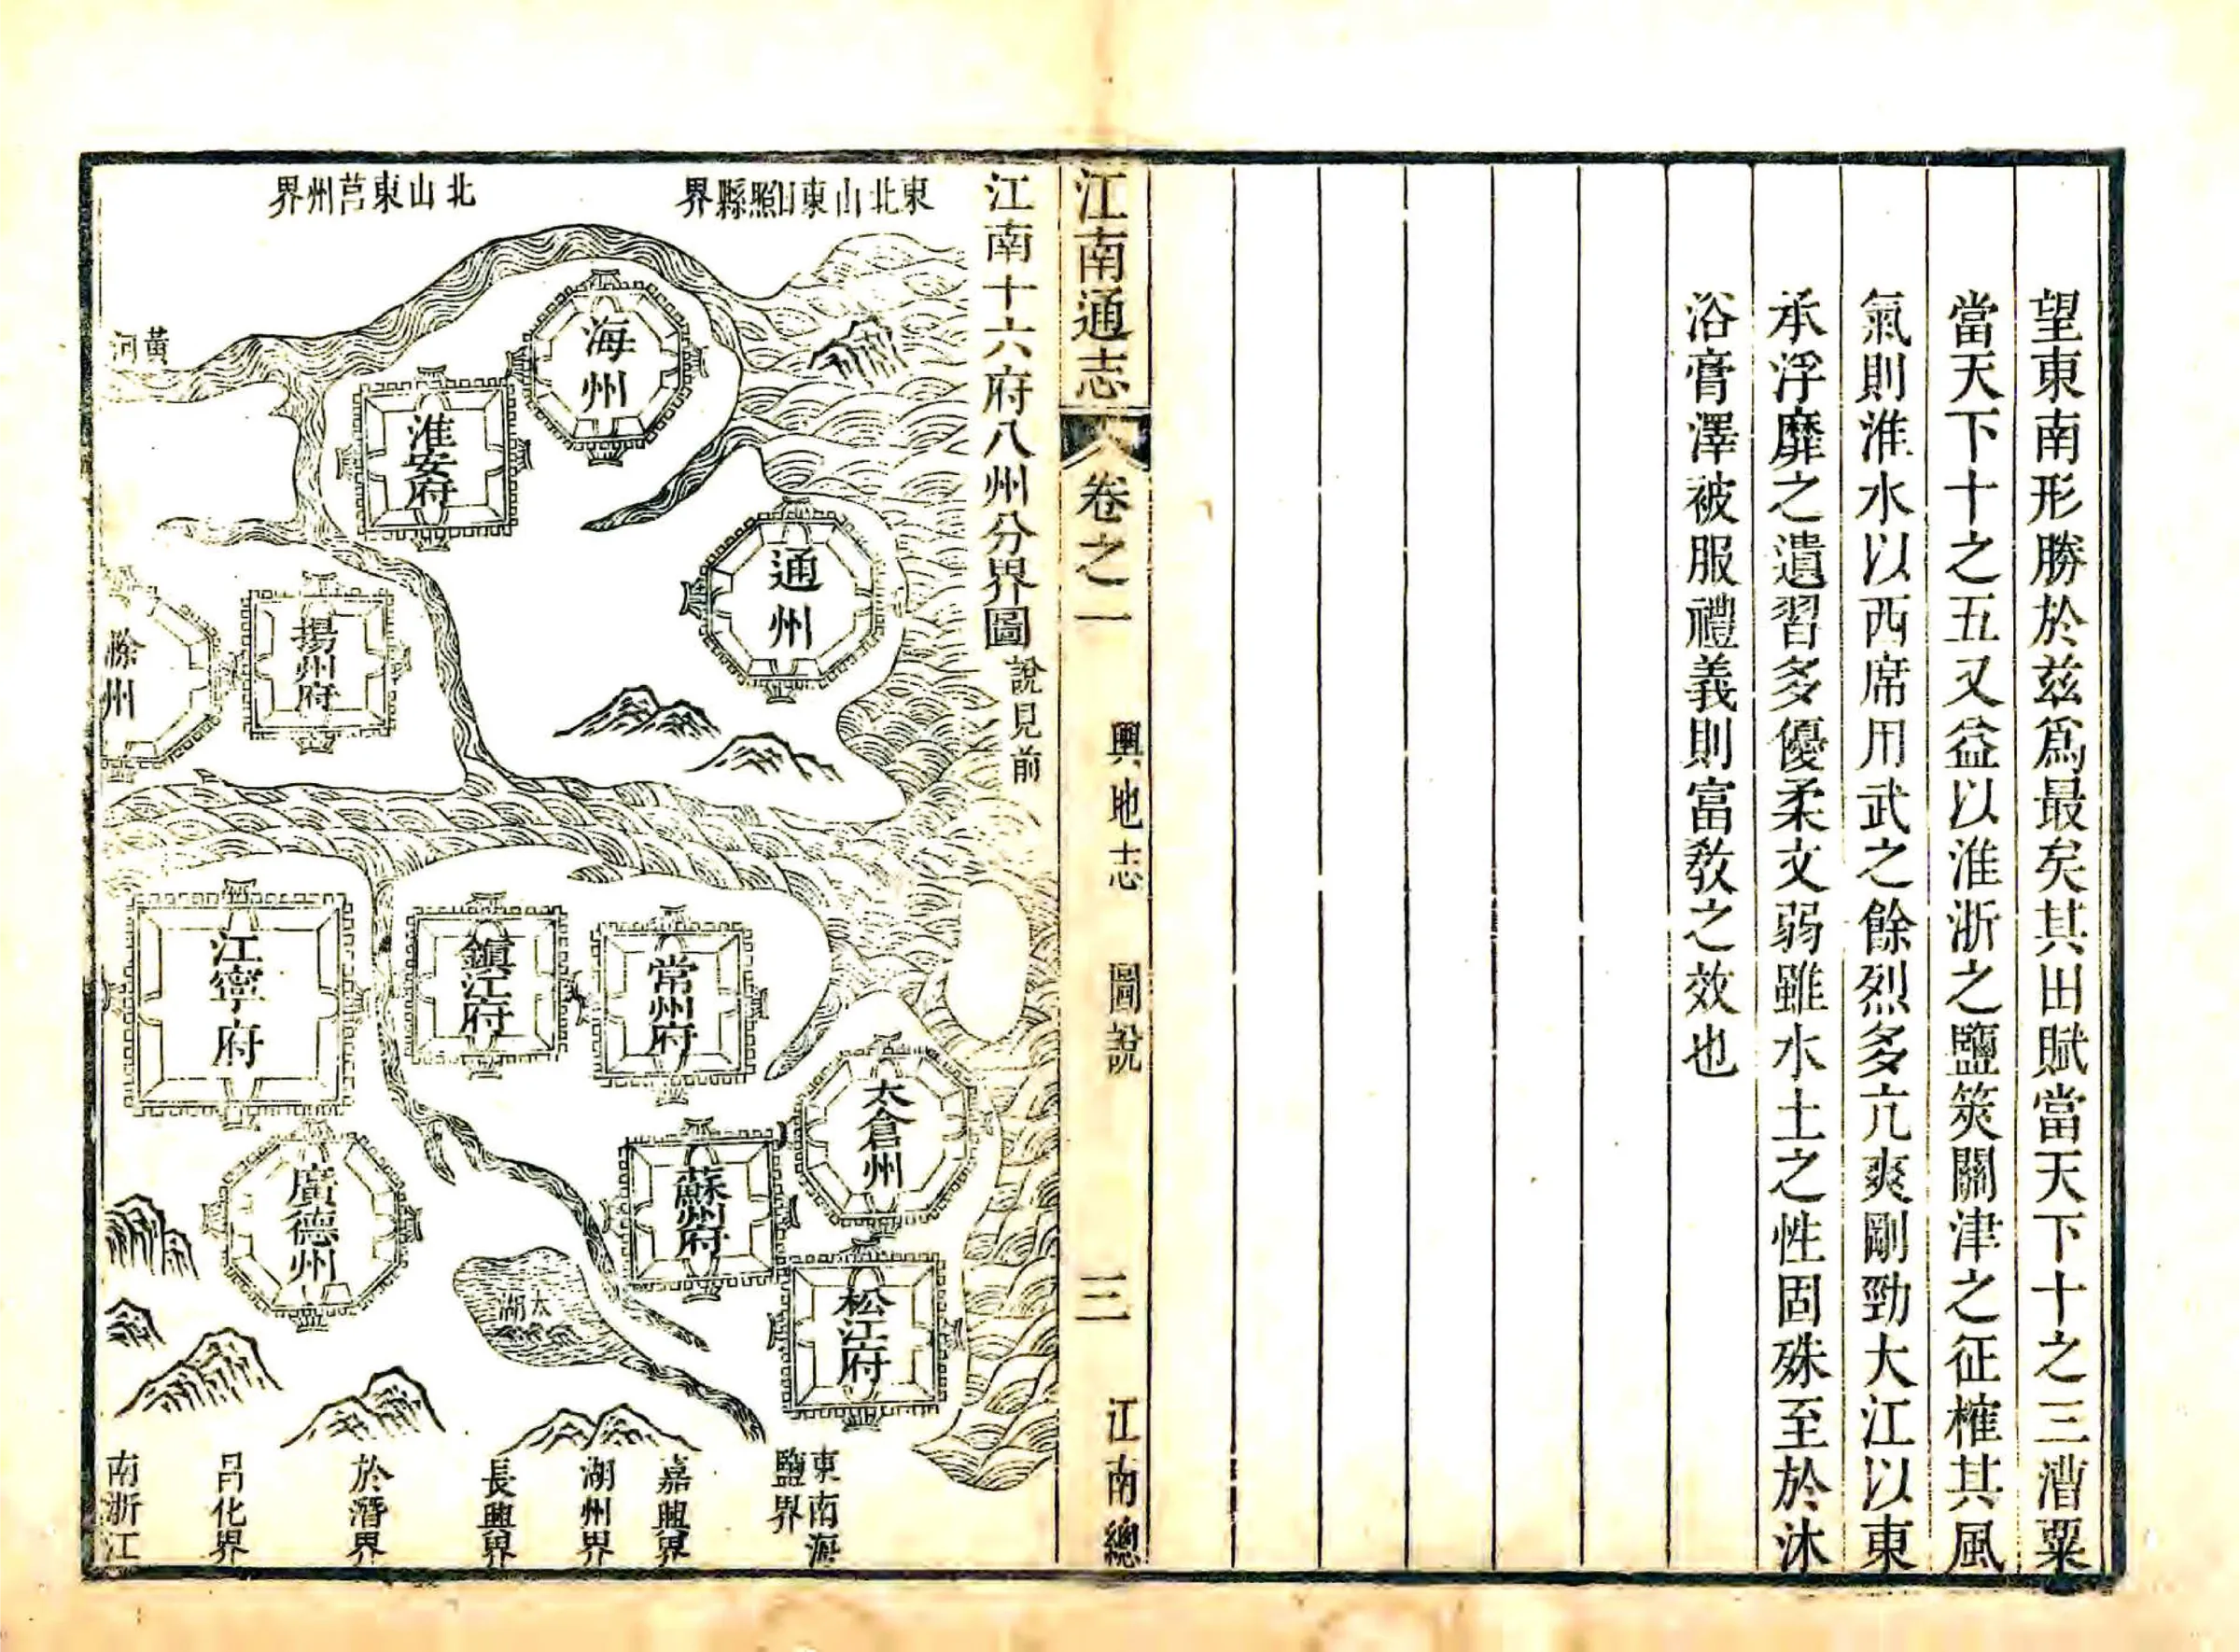 望東南形勝於茲爲最矣其田賦當天下十之三漕粟
當天下十之五又益以淮浙之鹽筴關津之征榷其風
氣則淮水以西席用武之餘烈多亢爽剛勁大江以東
承浮靡之遺習多優柔文弱雖水土之性固殊至於沐
浴膏澤被服禮義則富敎之效也
江南通志
卷之一
輿地志
圖說
三
江南總
江南十六府八州分界圖
說見前
東北山東日照縣界
北山東莒州界
黃河
海州
淮安府
通州
揚州府
滁州
常州府
鎮江府
江寧府
太倉州
蘇州府
廣德州
太湖
松江府
東南海
鹽界
嘉興界
湖州界
長興界
於潛界
昌化界
南浙江